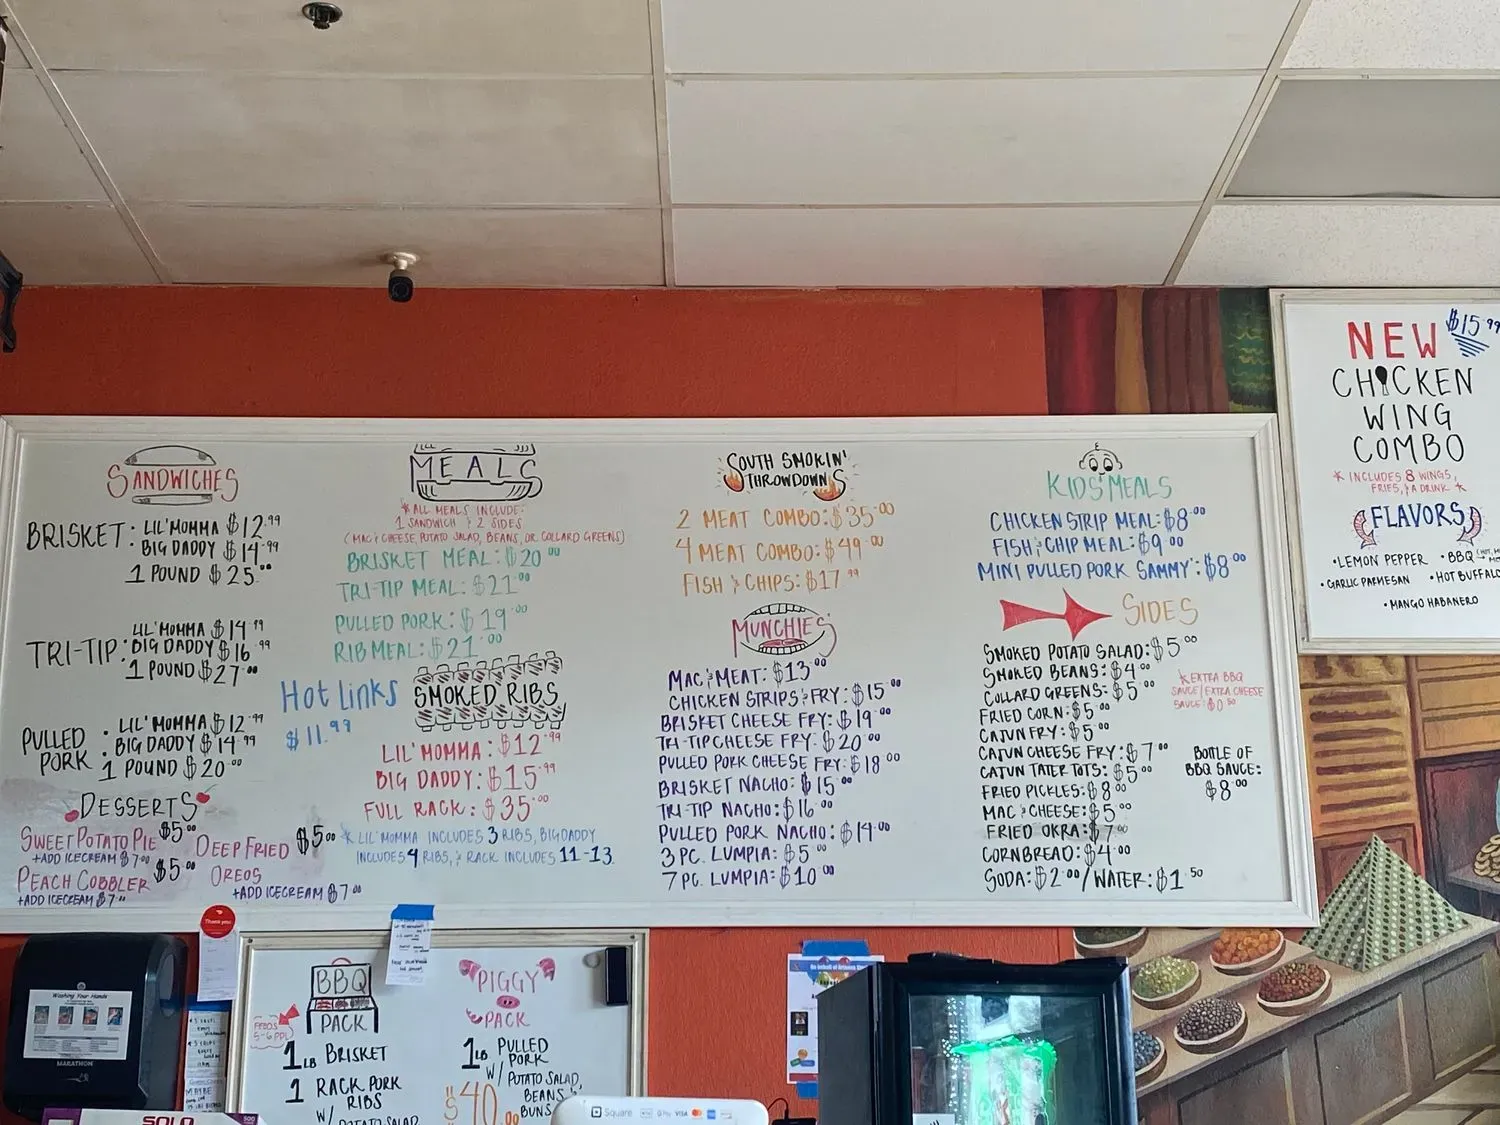 SANDWICHES
BRISKET: LIL'MOMMA $12.99
BIG DADDY $14.99
1 POUND $25.00
TRI-TIP: LIL'MOMMA $14.99
BIG DADDY $16.99
1 POUND $27.00
PULLED PORK: LIL'MOMMA $12.99
BIG DADDY $14.99
1 POUND $20.00
DESSERTS
SWEET POTATO PIE $5.00
+ADD ICECREAM $7.00
PEACH COBBLER $5.00
+ADD ICECREAM $7.00
DEEP FRIED OREOS $5.00
+ADD ICECREAM $7.00
MEALS
*ALL MEALS INCLUDE:
1 SANDWICH & 2 SIDES
(MAC & CHEESE, POTATO SALAD, BEANS, OR COLLARD GREENS)
BRISKET MEAL: $20.00
TRI-TIP MEAL: $21.00
PULLED PORK: $19.00
RIB MEAL: $21.00
Hot Links
$11.99
SMOKED RIBS
LIL'MOMMA: $12.99
BIG DADDY: $15.99
FULL RACK: $35.00
*LIL'MOMMA INCLUDES 3 RIBS, BIG DADDY
INCLUDES 4 RIBS, & RACK INCLUDES 11-13.
SOUTH SMOKIN'
THROWDOWNS
2 MEAT COMBO: $35.00
4 MEAT COMBO: $49.00
FISH & CHIPS: $17.99
MUNCHIES
MAC & MEAT: $13.00
CHICKEN STRIPS & FRY: $15.00
BRISKET CHEESE FRY: $19.00
TRI-TIP CHEESE FRY: $20.00
PULLED PORK CHEESE FRY: $18.00
BRISKET NACHO: $15.00
TRI-TIP NACHO: $16.00
PULLED PORK NACHO: $14.00
3 PC. LUMPIA: $5.00
7 PC. LUMPIA: $10.00
KIDS MEALS
CHICKEN STRIP MEAL: $8.00
FISH & CHIP MEAL: $9.00
MINI PULLED PORK SAMMY: $8.00
SIDES
SMOKED POTATO SALAD: $5.00
SMOKED BEANS: $4.00
COLLARD GREENS: $5.00
FRIED CORN: $5.00
CAJUN FRY: $5.00
CAJUN CHEESE FRY: $7.00
CAJUN TATER TOTS: $5.00
FRIED PICKLES: $8.00
MAC & CHEESE: $5.00
FRIED OKRA: $7.00
CORNBREAD: $4.00
SODA: $2.00 / WATER: $1.50
*EXTRA BBQ
SAUCE/EXTRA CHEESE
SAUCE: $0.50
BOTTLE OF
BBQ SAUCE:
$8.00
NEW $15.99
CHICKEN
WING
COMBO
*INCLUDES 8 WINGS,
FRIES, & A DRINK*
FLAVORS
•LEMON PEPPER •BBQ
•GARLIC PARMESAN •HOT BUFFALO
•MANGO HABANERO
Thank you!
Washing Your Hands
MARATHON
SOLO
500
BBQ
PACK
FEEDS
5-6 PPL
1LB BRISKET
1 RACK PORK
RIBS
W/ POTATO SALAD
PIGGY
PACK
1LB PULLED
PORK
W/ POTATO SALAD,
BEANS &
BUNS
$40.00
Square
G Pay VISA